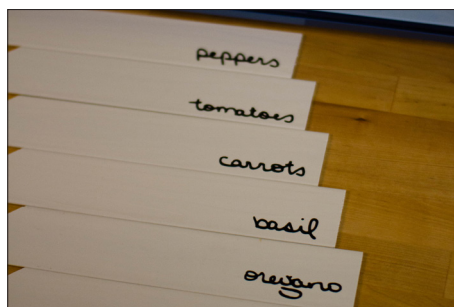 peppers
tomatoes
carrots
basil
oregano